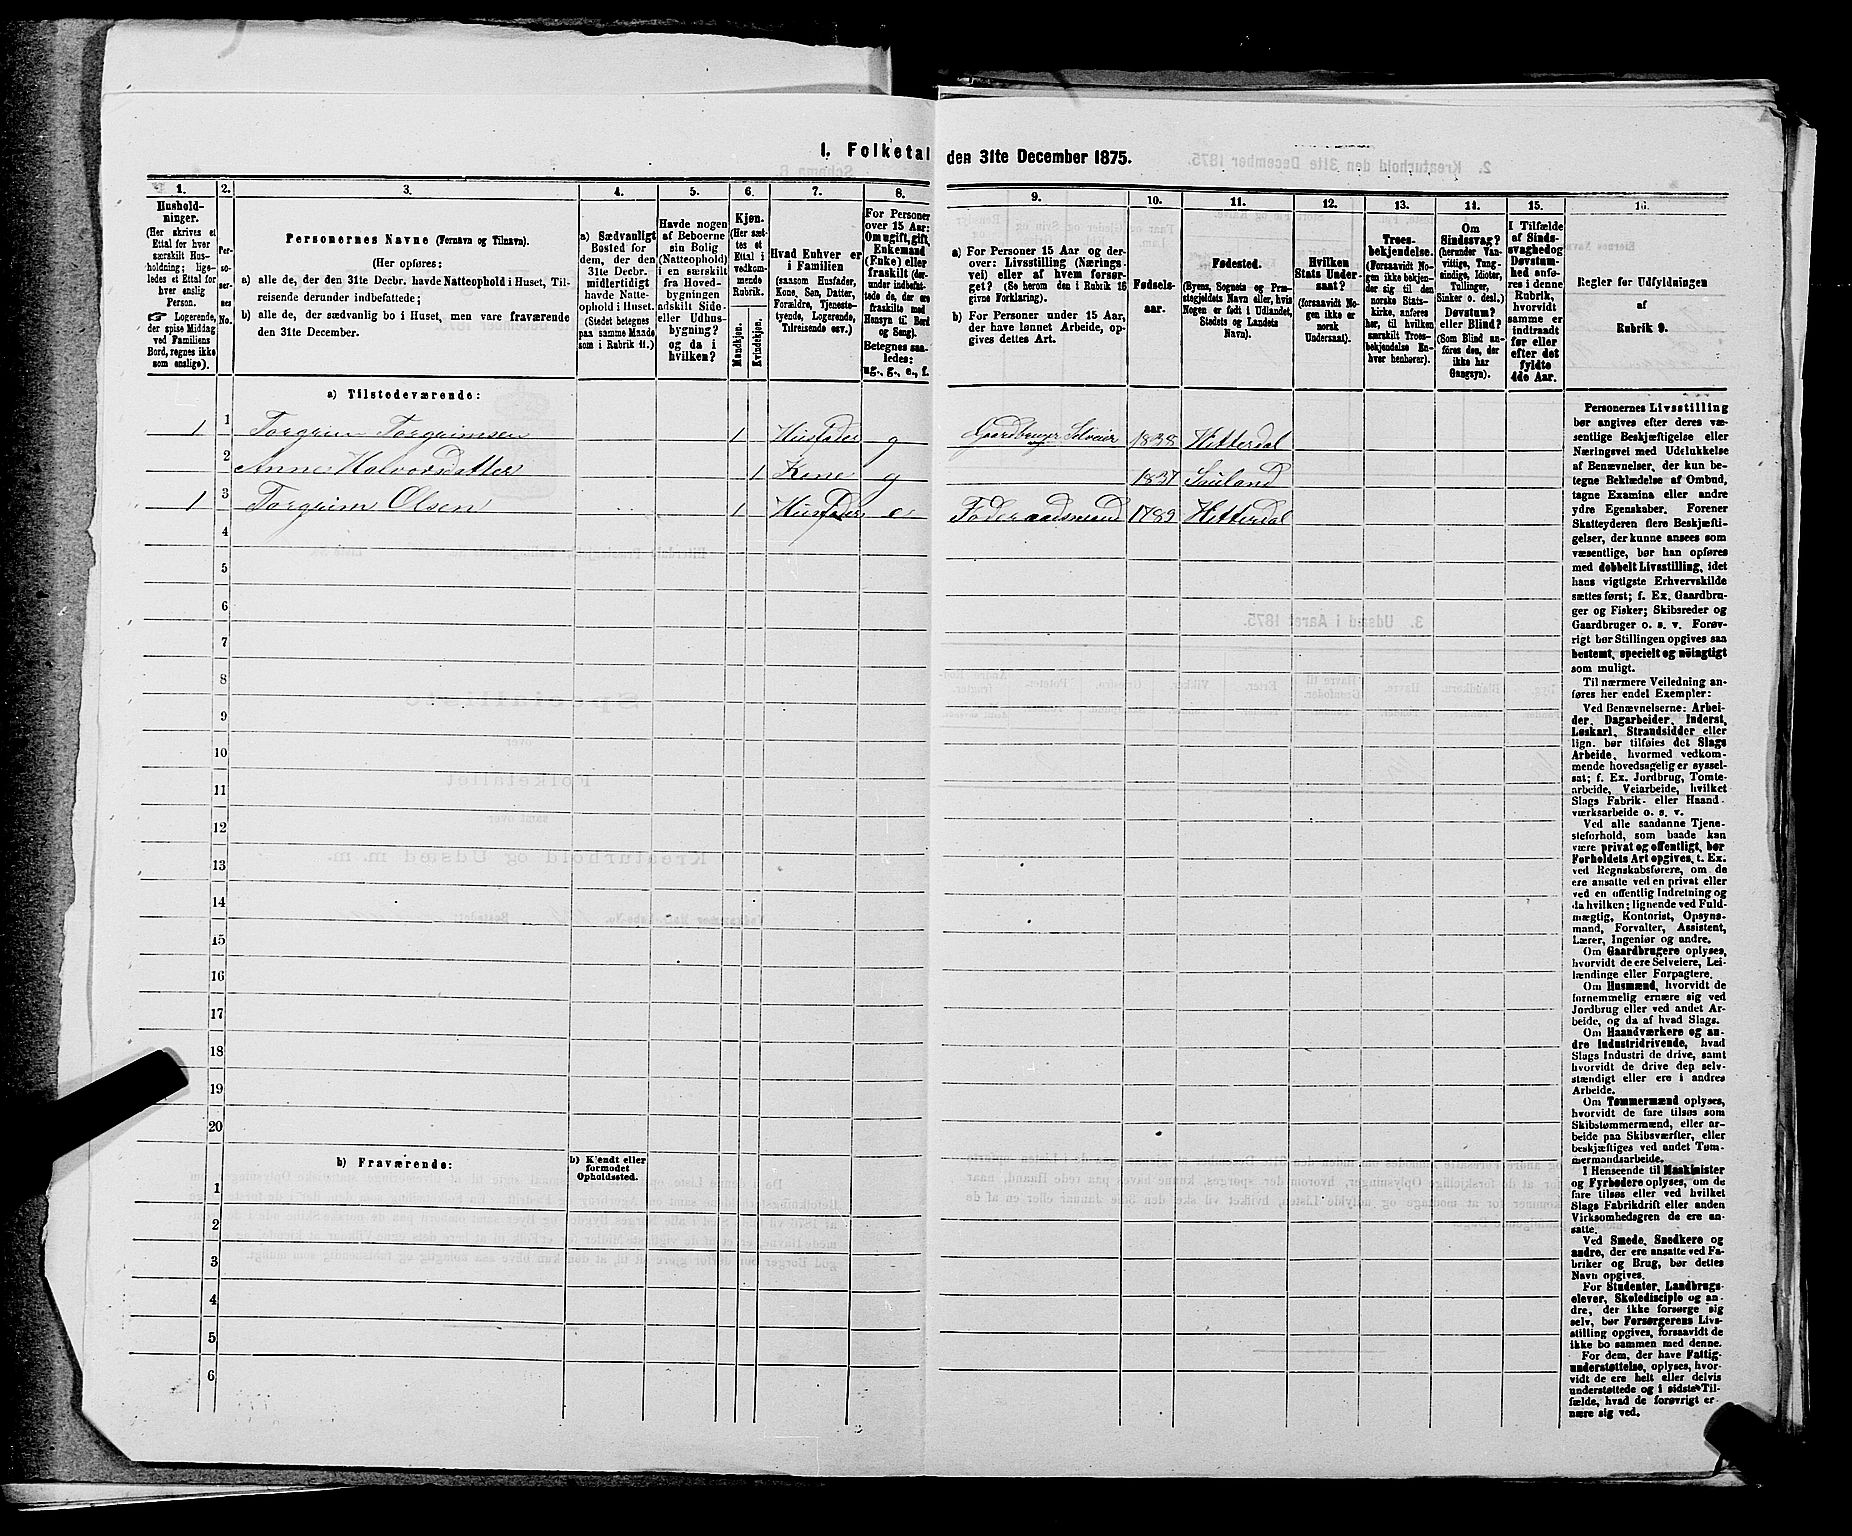 1. Folketal den 31te December 1875.
1. 2. 3. 4. 5. 6. 7. 8. 9. 10. 11. 12. 13. 14. 15. 16.
Husholdninger.
(Her skrives et
Ettal for hver
særskilt Husholdning;
ligeledes et Ettal for
hver enslig
Person.
☞ Logerende,
der spise Middag
ved Familiens
Bord, regnes ikke
som enslige).
Personernes No.
Personernes Navne (Fornavn og Tilnavn).
(Her opføres:
a) alle de, der den 31te Decbr. havde Natteophold i Huset, Tilreisende derunder indbefattede;
b) alle de, der sædvanlig bo i Huset, men vare fraværende
den 31te December.
a) Sædvanligt
Bosted for
dem, der den
31te Decbr.
midlertidigt
havde Natteophold i Huset.
(Stedet betegnes
paa samme Maade
som i Rubrik 11.)
Havde nogen
af Beboerne
sin Bolig
(Natteophold)
i en særskilt
fra Hovedbygningen
adskilt Side-
eller Udhusbygning?
og da i
hvilken?
Kjøn.
(Her sættes et
Ettal i
vedkommende
Rubrik.
Mandkjøn.
Kvindekjøn.
Hvad Enhver er
i Familien
(saasom Husfader,
Kone, Søn, Datter,
Forældre, Tjenestetyende, Logerende,
Tilreisende osv.)
For Personer
over 15 Aar:
Om ugift, gift,
Enkemand
(Enke) eller
fraskilt (derunder indbefattede de, der ere
fraskilte med
Hensyn til Bord
og Seng).
Betegnes saaledes:
ug., g., e., f.
a) For Personer 15 Aar og derover: Livsstilling (Næringsvei) eller af hvem forsørget? (Se herom den i Rubrik 16
givne Forklaring).
b) For Personer under 15 Aar,
der have lønnet Arbeide, opgives dettes Art.
Fødselsaar.
Fødested.
(Byens, Sognets og Præstegjeldets Navn eller, hvis
Nogen er født i Udlandet,
Stedets og Landets
Navn).
Hvilken
Stats Undersaat?
(forsaavidt Nogen ikke er
norsk
Undersaat).
Troesbekjendelse.
(Forsaavidt Nogen ikke bekjender sig til den
norske Statskirke, anføres her, til hvilken
særskilt Troesbekjendelse Enhver henhører).
Om
Sindssvag?
(herunder Vanvittige, Tungsindige, Idioter,
Tullinger,
Sinker o. desl.)
Døvstum?
eller Blind?
(Som Blind anføres den, der
ikke har
Gangsyn).
I Tilfælde
af Sindssvaghed og
Døvstumhed anføres i denne
Rubrik,
hvorvidt
samme er
indtraadt
før eller
efter det
fyldte
4de Aar.
Regler for Udfyldningen
af
Rubrik 9.
a) Tilstedeværende:
1 1 Torgrim Torgrimsen 1 Husfader g Gaardbruger Selveier 1838 Hitterdal
2 Anne Halvorsdatter 1 Kone g 1837 Sauland
1 3 Torgrim Olsen 1 Husfader e Føderaadsmand 1789 Hitterdal
4
5
6
7
8
9
10
11
12
13
14
15
16
17
18
19
20
b) Fraværende:
b) Kjendt eller
formodet
Opholdssted.
1
2
3
4
5
6
Personernes Livsstilling
bør angives efter deres væsentlige Beskjæftigelse eller
Næringsvei med Udelukkelse
af Benævnelser, der kun betegne Beklædelse af Ombud,
tagne Examina eller andre
ydre Egenskaber. Forener
Skatteyderen flere Beskjæftigelser, der kunne ansees som
væsentlige, bør han opføres
med dobbelt Livsstilling, idet
hans vigtigste Erhvervskilde
sættes først; f. Ex. Gaardbruger og Fisker; Skibsreder og
Gaardbruger o. s. v. Forøvrigt bør Stillingen opgives saa
bestemt, specielt og nøiagtigt
som muligt.
Til nærmere Veiledning anføres her endel Exempler:
Ved Benævnelserne: Arbeider, Dagarbeider, Inderst,
Løskarl, Strandsidder eller
lign. bør tilføies det Slags
Arbeide, hvormed vedkommende hovedsagelig er sysselsat; f. Ex. Jordbrug, Tomtearbeide, Veiarbeide, hvilket
Slags Fabrik- eller Haandværksarbeide o. s. v.
Ved alle saadanne Tjenesteforhold, som baade kan
være privat og offentligt, bør
Forholdets Art opgives, t. Ex.
ved Regnskabsførere, om de
ere ansatte ved en privat eller
ved en offentlig Indretning og
da hvilken; lignende ved Fuldmægtig, Kontorist, Opsynsmand, Forvalter, Assistent,
Lærer, Ingeniør og andre.
Om Gaardbrugere oplyses,
hvorvidt de ere Selveiere, Leilændinge eller Forpagtere.
Om Husmænd, hvorvidt de
fornemmelig ernære sig ved
Jordbrug eller ved andet Arbeide, og da af hvad Slags.
Om Haandværkere og andre Industridrivende, hvad
Slags Industri de drive, samt
hvorvidt de drive den selvstændigt eller ere i andres
Arbeide.
Om Tømmermænd oplyses,
hvorvidt de fare tilsøs som
Skibstømmermænd, eller arbeide paa Skibsværfter, eller
beskjæftiges ved andet Tømmermandsarbeide.
I Henseende til Maskinister
og Fyrbødere oplyses, om de
fare tilsøs eller ved hvilket
Slags Fabrikdrift eller anden
Virksomhedsgren de ere ansatte.
Ved Smede, Snedkere og
andre, der ere ansatte ved Fabriker og Brug, bør dettes
Navn opgives.
For Studenter, Landbrugselever, Skoledisciple og andre, der ikke forsørge sig
selv, bør Forsørgerens Livsstilling opgives, forsaavidt de
ikke bo sammen med denne.
For dem, der have Fattigunderstøttelse, oplyses, hvorvidt de ere helt eller delvis
understøttede og i sidste Tilfælde, hvad de forøvrigt ernære sig ved.